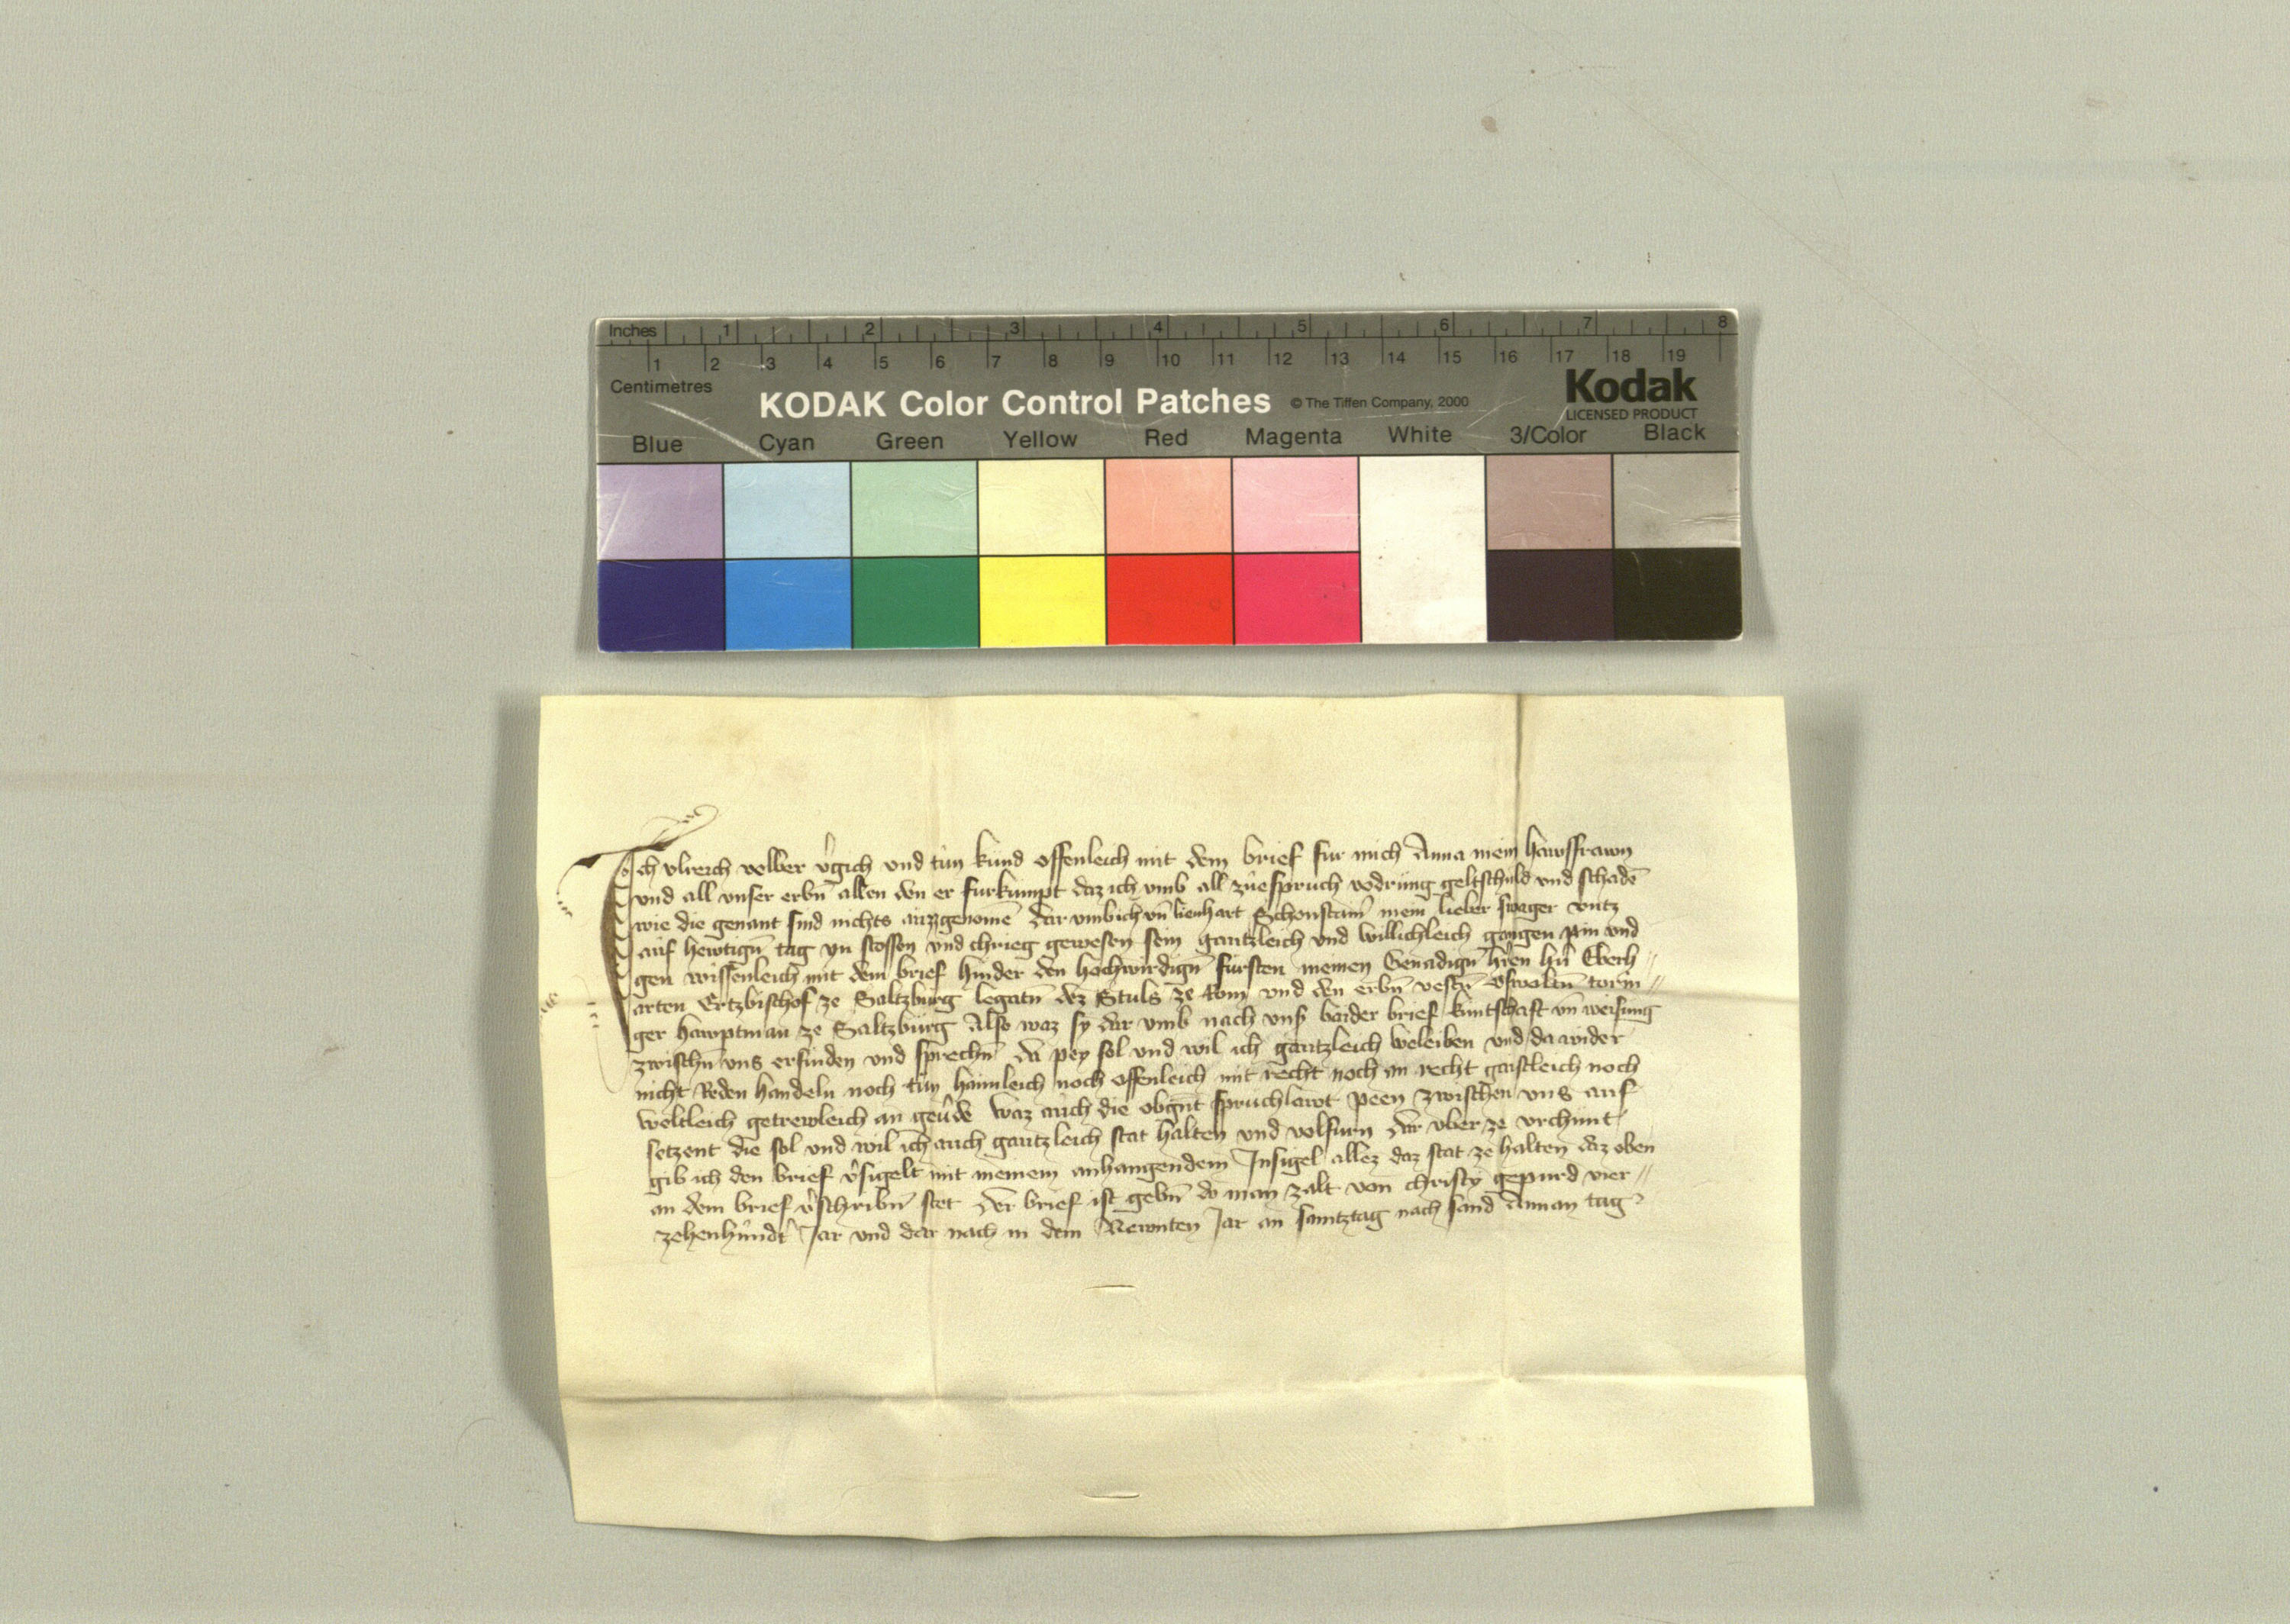 Inches 1 2 3 4 5 6 7 8
1 2 3 4 5 6 7 8 9 10 11 12 13 14 15 16 17 18 19
Centimetres
KODAK Color Control Patches © The Tiffen Company, 2000 Kodak
LICENSED PRODUCT
Blue Cyan Green Yellow Red Magenta White 3/Color Black
Ich vlreich velber v̓gich vnd tůn kund offenleich mit dem brief fur mich Anna mein hawsfrawn
vnd all vnser erbn̄ allen den er furkumpt daz ich vmb all zuespruch vodrung geltschuld vnd schadē
wie die genant sind nichts auzzgenomē dar vmb ich vn̄ lienhart Schonstain̄ mein lieber swager vntz
auf hewtign̄ tag yn stossen vnd chrieg gewesen sein gantzleich vnd willichleich gangen pin vnd
gen wissenleich mit dem brief hinder den hochwirdign̄ fursten meinen Genadign̄ hr̄en hn̄ Eberh//
arten Ertzbischof ze Saltzburg legatn̄ dez Stuls ze Rom vnd den erbn̄ vestn̄ Oswaltn̄ torin//
ger hawptman ze Saltzburg Also waz sy dar vmb nach vns̄ baider brief kuntschaft vn̄ weisung
zwischn̄ vns erfinden vnd sprechn̄ da pey sol vnd wil ich gantzleich beleiben vnd da wider
nicht Reden handeln noch tůn haimleich noch offenleich mit recht noch an recht gaistleich noch
weltleich getrewleich an geu̓de waz auch die obgn̄t spruchlawt peen zwischen vns auf
setzent die sol vnd wil ich auch gantzleich stat halten vnd volfurn dar vber ze vrchunt
gib ich den brief v̓sigelt mit meinem anhangendem Insigel allez daz stat ze halten daz oben
an dem brief v̓schribn̄ stet Der brief ist gebn̄ do man zalt von christy gepurd vier//
zehenhundt̓ Jar vnd dar nach in dem Newnten Jar an samtztag nach sand Annan tag